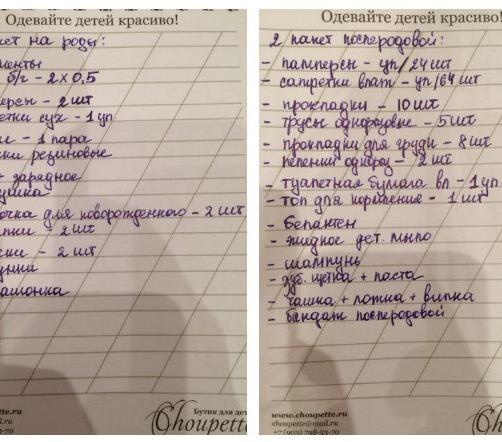 Одевайте детей красиво!
кет на роды:
менты
б/г - 2 х 0,5
ерсы - 2 шт
етки сух - 1 уп
и - 1 пара
ки резиновые
+ зарядное
ушка
очка для новорожденного - 2 шт
пки - 2 шт
ски - 2 шт
унки
ашонка
pette.ru
Бутик для де
ail.ru
-70
Choupette
Одевайте детей красиво!
2 пакет послеродовой:
- памперсы - уп/24 шт
- салфетки влаж - уп/64 шт
- прокладки - 10 шт
- трусы одноразовые - 5 шт
- прокладки для груди - 8 шт
- пеленки однораз - 2 шт
- туалетная бумага вл - 1 уп
- топ для кормления - 1 шт
- бепантен
- жидкое дет. мыло
- шампунь
- зуб. щетка + паста
- чашка + ложка + вилка
- бандаж послеродовой
www.choupette.ru
choupette@mail.ru
+7 (903) 798-53-70
Choup